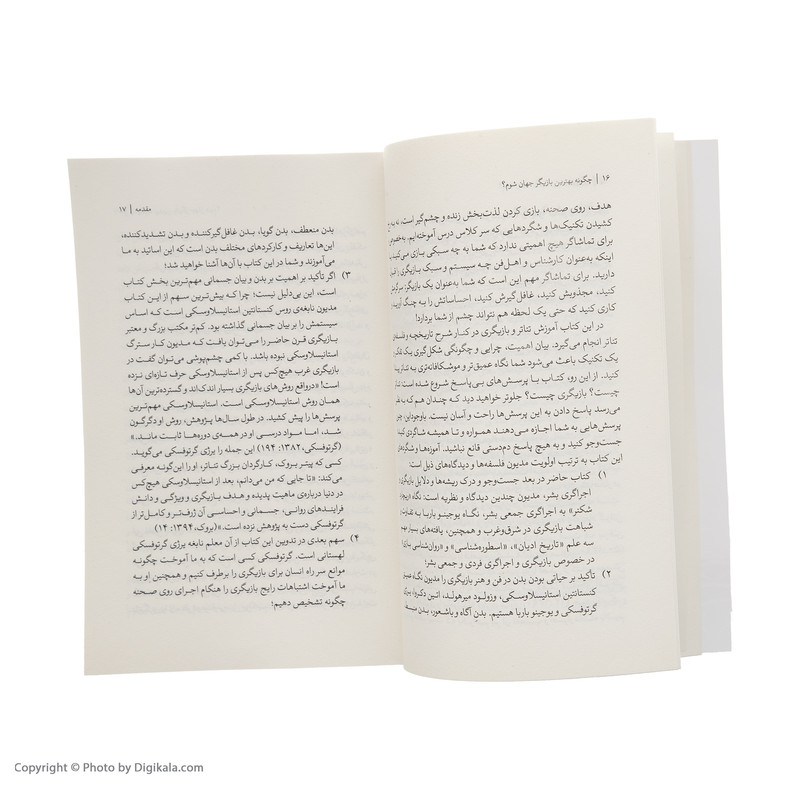 ۱۶ | چگونه بهترین بازیگر جهان شوم؟
هدف، روی صحنه، بازی کردن لذت‌بخش زنده و چشم‌گیر است، نه به رخ
کشیدن تکنیک‌ها و شگردهایی که سر کلاس درس آموخته‌ایم. به‌خصوص
برای تماشاگر هیچ اهمیتی ندارد که شما به چه سبکی بازی می‌کنید
اینکه به‌عنوان کارشناس و اهل‌فن چه سیستم و سبک بازیگری را
دارید. برای تماشاگر مهم این است که شما به‌عنوان یک بازیگر: سرگرمش
کنید، مجذوبش کنید، غافل‌گیرش کنید، احساساتش را به چنگ آورید
کاری کنید که حتی یک لحظه هم نتواند چشم از شما بردارد!
در این کتاب آموزش تئاتر و بازیگری در کنار شرح تاریخچه و فلسفه‌ی
تئاتر انجام می‌گیرد. بیان اهمیت، چرایی و چگونگی شکل‌گیری یک
یک تکنیک باعث می‌شود شما نگاه عمیق‌تر و موشکافانه‌تری به تئاتر
کنید. از این رو، کتاب با پرسش‌های بی‌پاسخ شروع شده است:
چیست؟ بازیگری چیست؟ جلوتر خواهید دید که چندان هم که
می‌رسد پاسخ دادن به این پرسش‌ها راحت و آسان نیست. باوجوداین، چنین
پرسش‌هایی به شما اجازه می‌دهند همواره و تا همیشه شاگردی کنید
جست‌وجو کنید و به هیچ پاسخ دم‌دستی قانع نباشید. آموزه‌ها و شگردهای
این کتاب به ترتیب اولویت مدیون فلسفه‌ها و دیدگاه‌های ذیل است:
۱) کتاب حاضر در بعد جست‌وجو و درک ریشه‌ها و دلایل بازیگری
اجراگری بشر، مدیون چندین دیدگاه و نظریه است: نگاه «ریچارد
شکنر» به اجراگری جمعی بشر، نگاه یوجینو باربا به تفاوت‌ها و
شباهت بازیگری در شرق‌وغرب و همچنین، یافته‌های بسیار مهم
سه علم «تاریخ ادیان»، «اسطوره‌شناسی» و «روان‌شناسی
در خصوص بازیگری و اجراگری فردی و جمعی بشر؛
۲) تأکید بر حیاتی بودن بدن در فن و هنر بازیگری را مدیون نگاه عمیق
کنستانتین استانیسلاوسکی، وزولود میرهولد، اتین دکرو، یرژی
گرتوفسکی و یوجینو باربا هستیم. بدنِ آگاه و باشعور، بدن منبسط
مقدمه | ۱۷
بدن منعطف، بدن گویا، بدن غافل‌گیرکننده و بدن تشدیدکننده،
این‌ها تعاریف و کارکردهای مختلف بدن است که این اساتید به ما
می‌آموزند و شما در این کتاب با آن‌ها آشنا خواهید شد؛
۳) اگر تأکید بر اهمیت بر بدن و بیان جسمانی مهم‌ترین بخش کتاب
است، این بی‌دلیل نیست؛ چرا که بیش‌ترین سهم از این کتاب
مدیون نابغه‌ی روس کنستانتین استانیسلاوسکی است که اساس
سیستمش را بر بیان جسمانی گذاشته بود. کم‌تر مکتب بزرگ و معتبر
بازیگری قرن حاضر را می‌توان یافت که مدیون کار سترگ
استانیسلاوسکی نبوده باشد. با کمی چشم‌پوشی می‌توان گفت در
بازیگری غرب هیچ‌کس پس از استانیسلاوسکی حرف تازه‌ای نزده
است! «درواقع روش‌های بازیگری بسیار اندک‌اند و گسترده‌ترین آن‌ها
همان روش استانیسلاوسکی است. استانیسلاوسکی مهم‌ترین
پرسش‌ها را پیش کشید. در طول سال‌ها پژوهش، روش او دگرگون
شد، اما مواد درسی او در همه‌ی دوره‌ها ثابت ماند.»
(گرتوفسکی، ۱۳۸۲: ۱۹۴) این جمله را یرژی گرتوفسکی می‌گوید.
کسی که پیتر بروک، کارگردان بزرگ تئاتر، او را این‌گونه معرفی
می‌کند: «تا جایی که من می‌دانم، بعد از استانیسلاوسکی هیچ‌کس
در دنیا درباره‌ی ماهیت پدیده و هدف بازیگری و ویژگی و دانش
فرایندهای روانی، جسمانی و احساسی آن ژرف‌تر و کامل‌تر از
گرتوفسکی دست به پژوهش نزده است.»(بروک، ۱۳۹۴: ۱۴)
۴) سهم بعدی در تدوین این کتاب از آن معلم نابغه یرژی گرتوفسکی
لهستانی است. گرتوفسکی کسی است که به ما آموخت چگونه
موانع سر راه انسان برای بازیگری را برطرف کنیم و همچنین او به
ما آموخت اشتباهات رایج بازیگری را هنگام اجرای روی صحنه
چگونه تشخیص دهیم؛
Copyright © Photo by Digikala.com